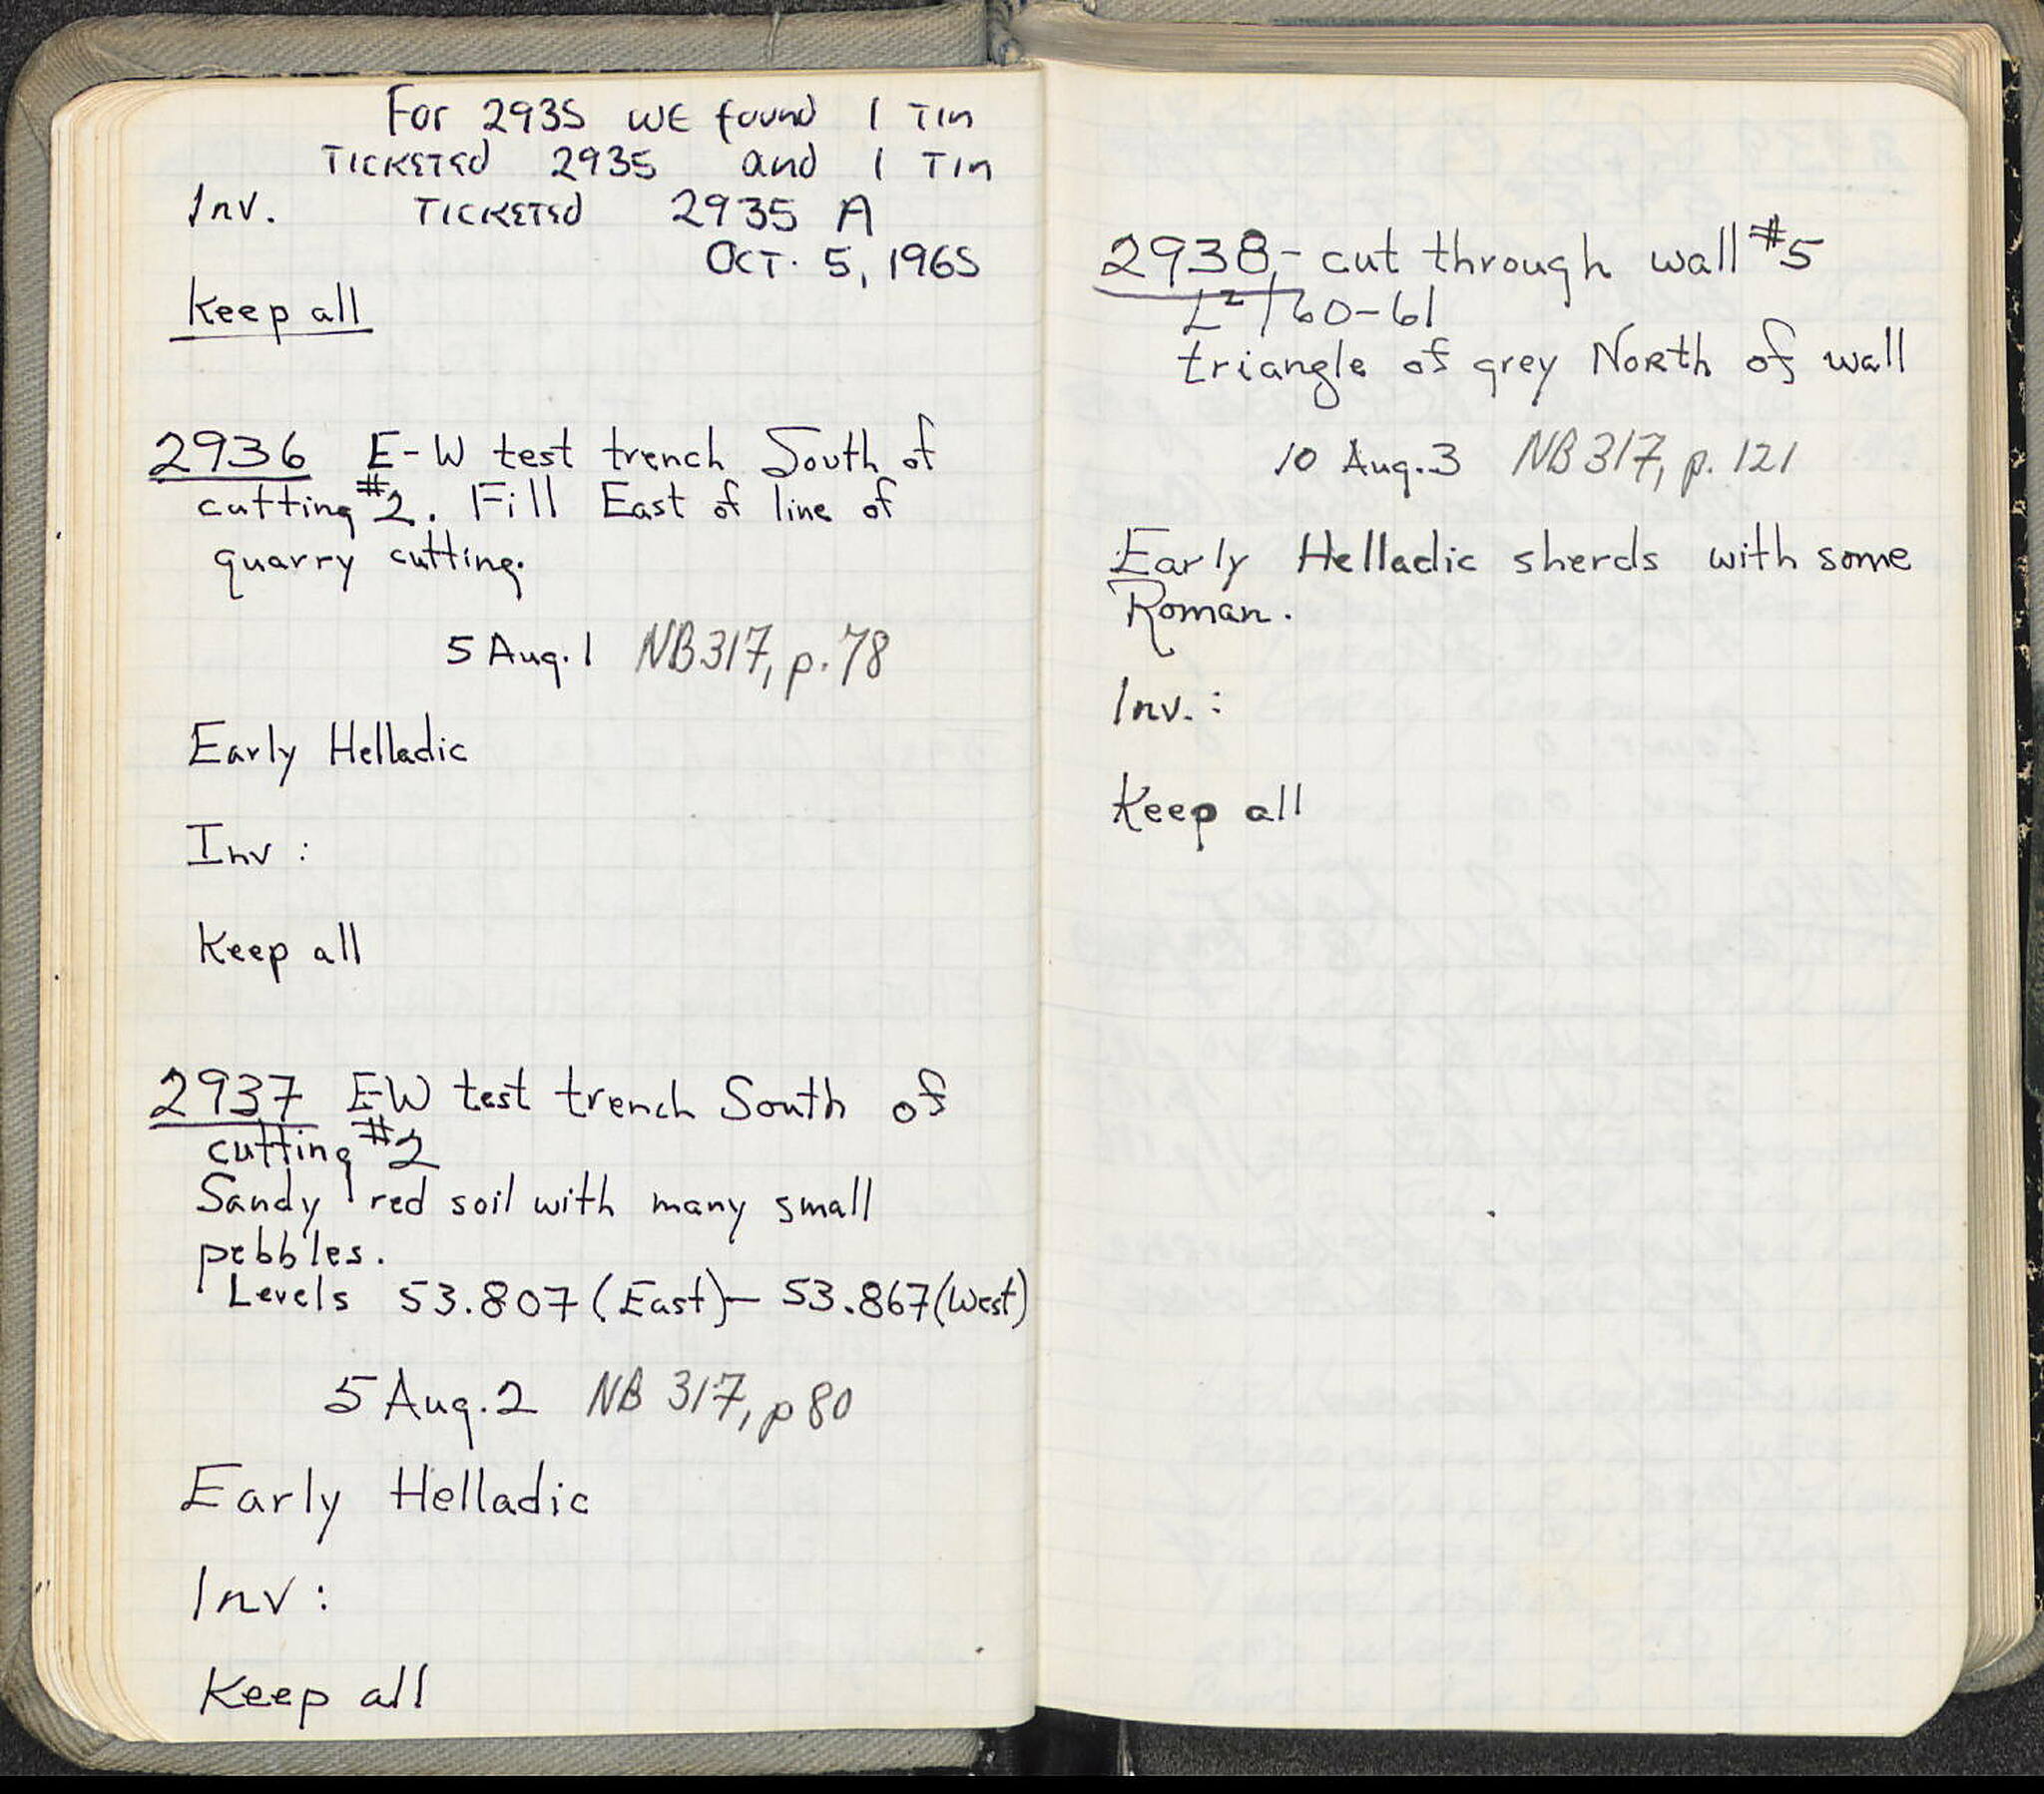 For 2935 WE found 1 Tin
TICKETED 2935 and 1 Tin
Inv. TICKETED 2935 A
OCT. 5, 1965
Keep all
2936 E-W test trench South of
cutting #2. Fill East of line of
quarry cutting.
5 Aug. 1 NB 317, p. 78
Early Helladic
Inv :
Keep all
2937 E-W test trench South of
cutting #2
Sandy red soil with many small
pebbles.
Levels 53.807 (East) – 53.867 (West)
5 Aug. 2 NB 317, p 80
Early Helladic
Inv :
Keep all
2938,- cut through wall #5
L²/60-61
triangle of grey North of wall
10 Aug. 3 NB 317, p. 121
Early Helladic sherds with some
Roman.
Inv. :
Keep all